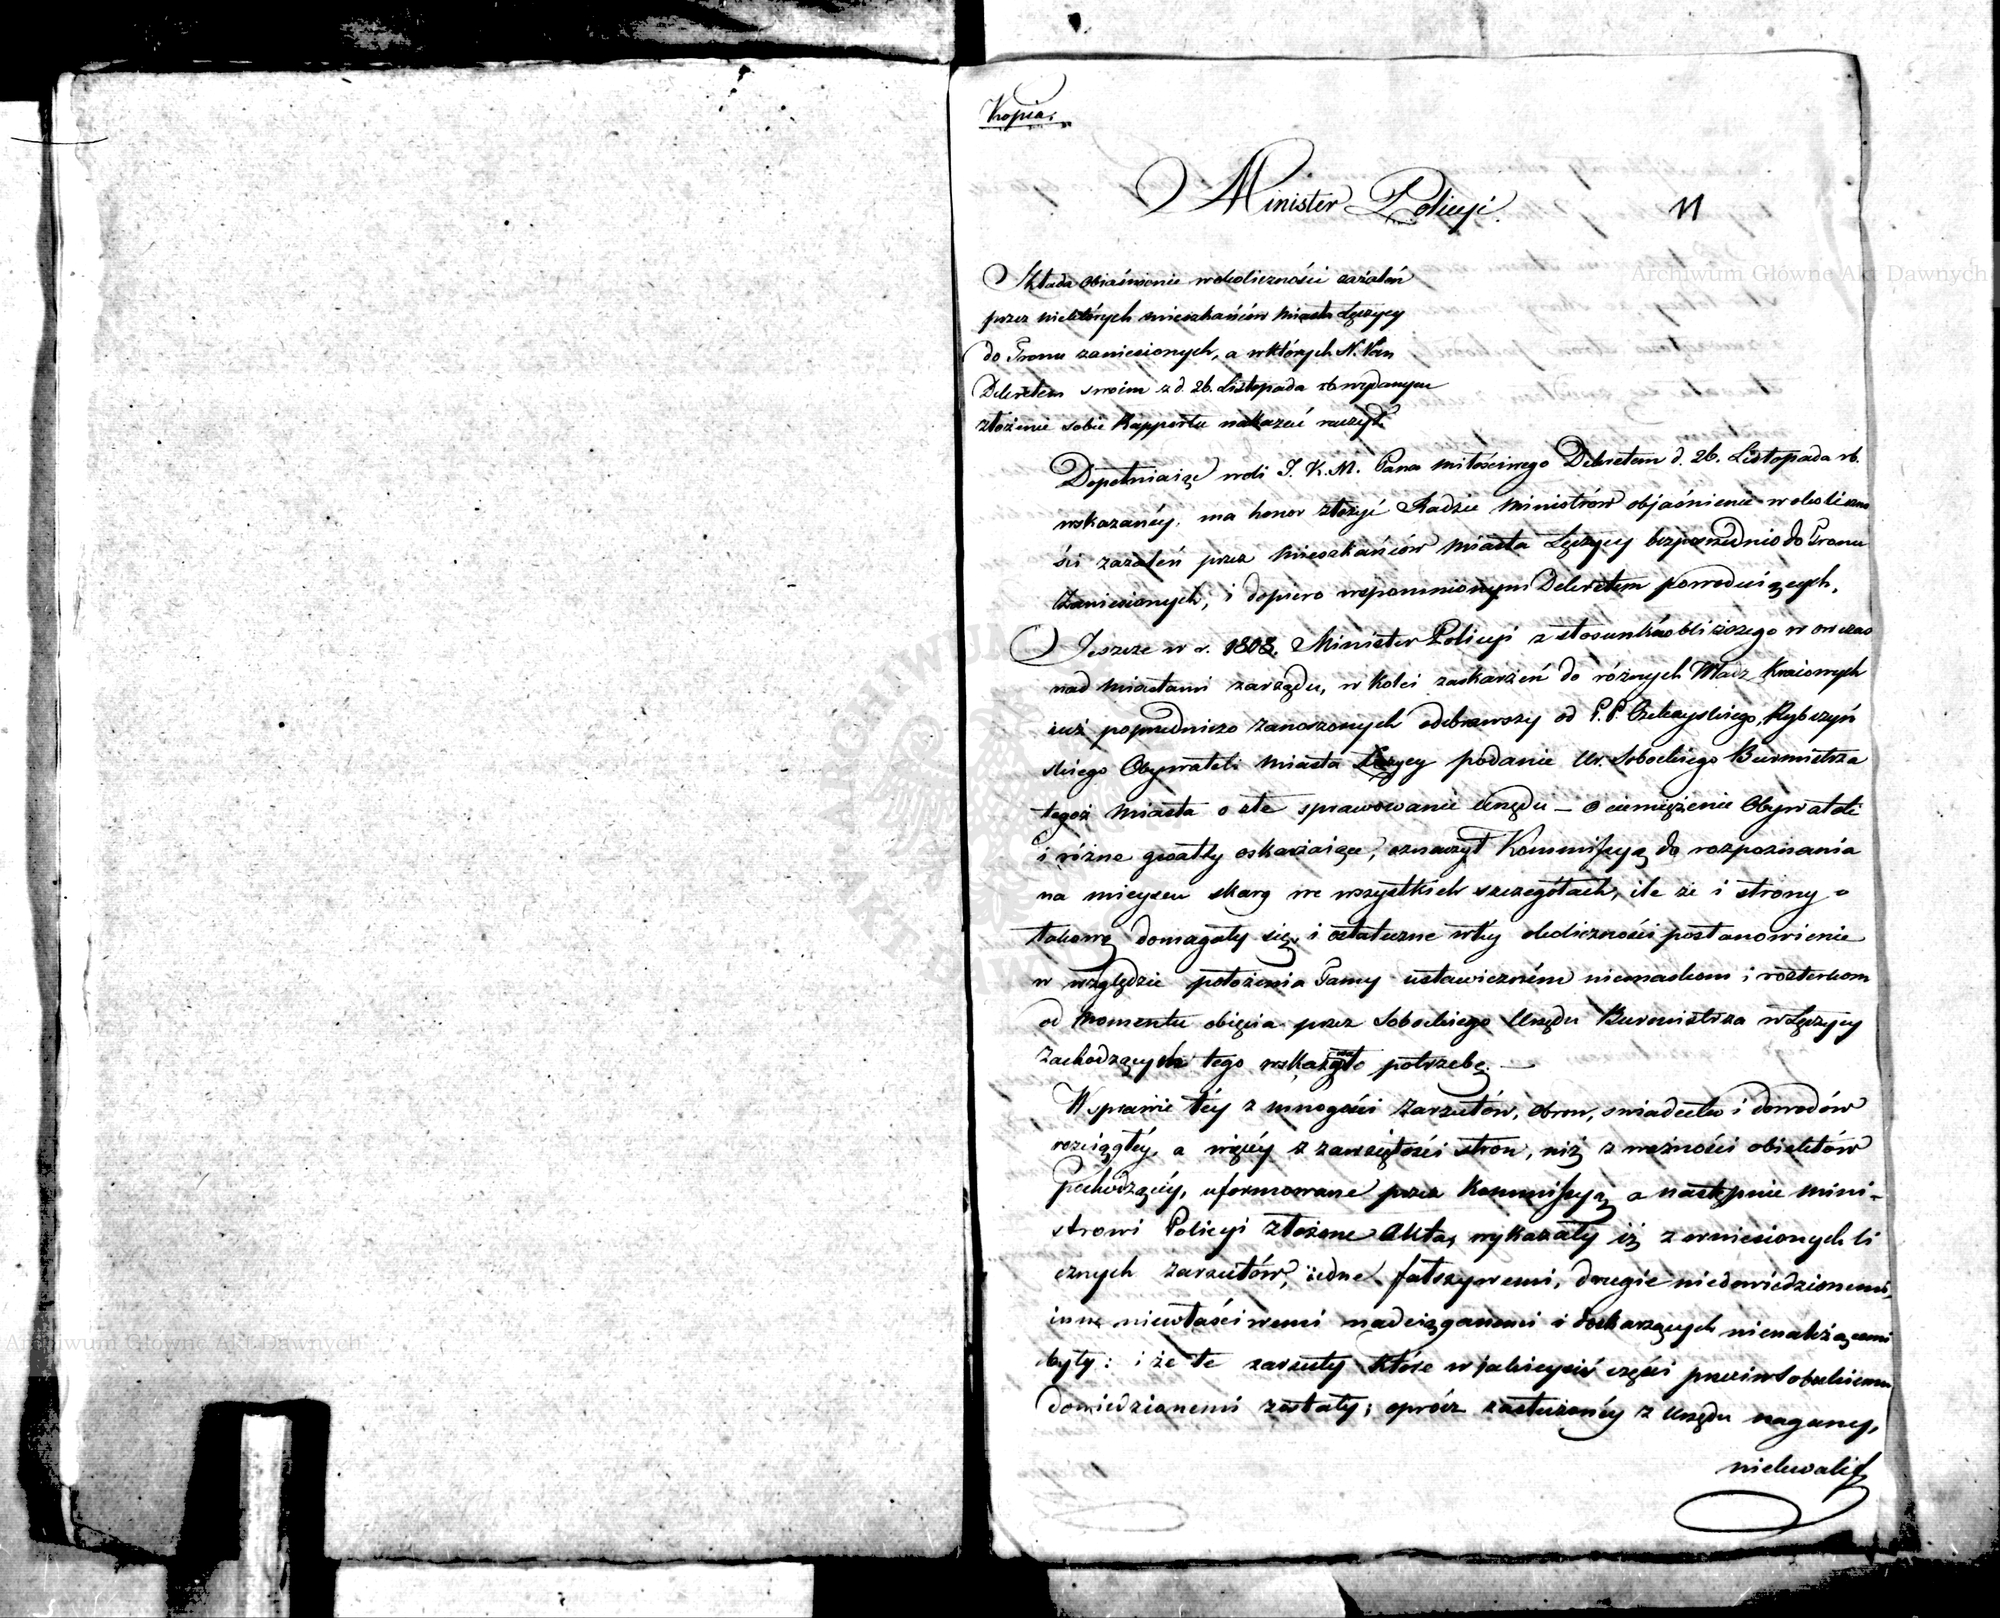 Kopia.
Minister Policyi.
11
Składa obiaśnienie w okoliczności zażaleń
przez niektórych mieszkańców miasta Łęczycy
do Tronu zaniesionych, a w których N. Pan
Dekretem swoim z d. 26. Listopada rb wydanym
złożenie sobie Rapportu nakazać raczył.
Dopełniaiąc woli J. K. M. Pana Miłościwego Dekretem d. 26. Listopada rb.
wskazanéy, ma honor złożyć Radzie Ministrów objaśnienie w okoliczno
ści zażaleń przez Mieszkańców Miasta Łęczycy bezpośrednio do Tronu
zaniesionych, i dopiero wspomnionym Dekretem powodui ących.
Jeszcze w r. 1808. Minister Policyi z stosunków bliższego w ówczas
nad Miastami zarządu, w kolei zaskarżeń do różnych Władz Kraiowych
iuż poprzedniczo zanoszonych odebrawszy od P. P. Rybczyń
skiego Obywateli Miasta Łęczycy podanie Ur. Sobockiego Burmistrza
tegoż Miasta o złe sprawowanie Urzędu – o ciemiężenie Obywateli
i różne gwałty oskarżaiące, oznaczył Kommissyą do rozpoznania
na mieyscu skarg we wszystkich szczegółach, ile że i strony
takowę domagały się, i ostateczne w téy okoliczności postanowienie
w względzie położenia Tamy ustawiczném niesnaskom i rozterkom
od momentu obięcia przez Sobockiego Urzędu Burmistrza w Łęczycy
zachodzących tego wskazało potrzebę. –
W sprawie téy z mnogości zarzutów, obron, świadectw i dowodów
rozciągłéy, a więcéy z zawziętości stron, niż z ważności obiektów
pochodzącéy, uformowane przez Kommissyą a następnie Mini-
strowi Policyi złożone Akta, wykazały iż z wniesionych li
cznych zarzutów, iedne fałszywemi, drugie niedowiedzionemi,
inne niewłaściwemi nadciąganemi i doskarżących nienależącemi
były: i że te zarzuty które w jakieyciś części przeciw Sobockiemu
dowiedzionemi zostały; oprócz zasłużonéy z Urzędu nagany,
niekwalif